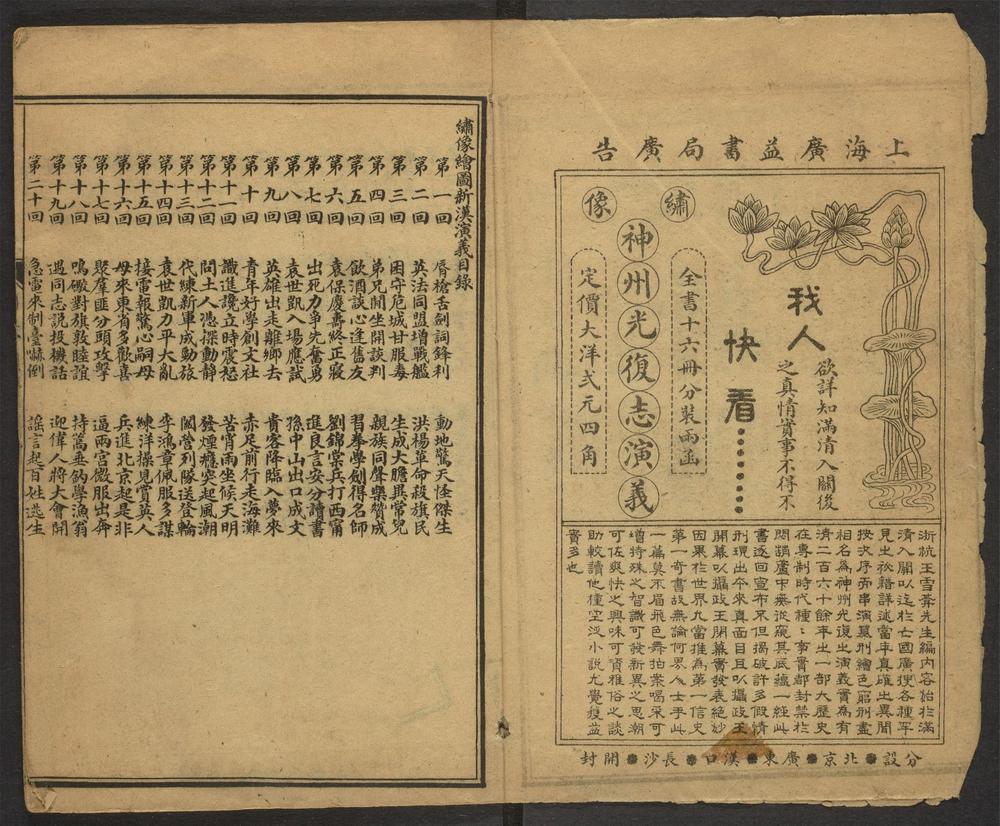 上海廣益書局廣告
我人
快看
欲詳知滿清入關後
之真情實事不得不
繡像
神州光復志演義
全書十六冊分裝兩函
定價大洋弍元四角
浙杭王雪菴先生編內容始於滿
清入關以迄於亡國廣搜各種軍
見出秘籍詳述當年真確出異聞
按次序而串演纂刑繪色窮刑盡
相名為神州光復出演義實為有
清二百六十餘年出一部大歷史
在專制時代種種事實都封禁於
悶葫蘆中無從窺其底蘊一經此
書逐回宣布不但揭破許多假情
刑現出本來真面目且以攝政王
開幕以攝政王閉幕實發表絕妙
因果於世界尤當推為第一信史
第一奇書故無論何界人士手此
一篇莫不眉飛色舞拍案喝采可
增特殊之智識可發新異之思潮
可佐爽快之興味可資雅俗之談
助較讀他種空泛小說尤覺獲益
實多也
分設北京廣東漢口長沙開封
繡像繪圖新漢演義目錄
第一回 脣槍舌劍詞鋒利 動地驚天怪傑生
第二回 英法同盟增戰艦 洪楊革命殺旗民
第三回 困守危城甘服毒 生成大膽異常兒
第四回 弟兄閒坐開談判 親族同聲樂贊成
第五回 飲酒談心逢舊友 習拳學劍得名師
第六回 袁保慶壽終正寢 劉錦棠兵打西甯
第七回 出死力爭先奮勇 進良言安分讀書
第八回 袁世凱入場應試 孫中山出口成文
第九回 英雄出走離鄉去 貴客降臨入夢來
第十回 青年好學創文社 赤足前行走海灘
第十一回 識進讒立時震怒 苦宵雨坐候天明
第十二回 問土人憑探動靜 發煙癮突起風潮
第十三回 代練新軍成勁旅 闔營列隊送登輪
第十四回 袁世凱力平大亂 李鴻章佩服多謀
第十五回 接電報驚心嗣母 練洋操見賞英人
第十六回 母來東省多歡喜 兵進北京起是非
第十七回 聚羣匪分頭攻擊 逼兩宮微服出奔
第十八回 鳴礮對旗敦睦誼 持篙垂釣學漁翁
第十九回 遇同志說投機話 迎偉人將大會開
第二十回 急電來制臺嚇倒 謠言起百姓逃生